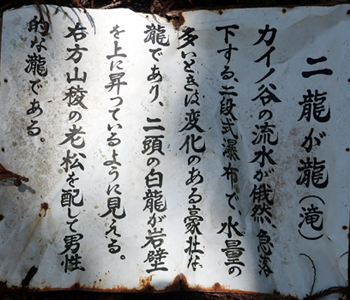 二龍が瀧(滝)
カイノ谷の流水が俄然、急落
下する、二段式瀑布で、水量の
多いときは変化のある豪壮な
瀧であり、二頭の白龍が岩壁
を上に昇っているように見える。
右方山稜の老松を配して男性
的な瀧である。